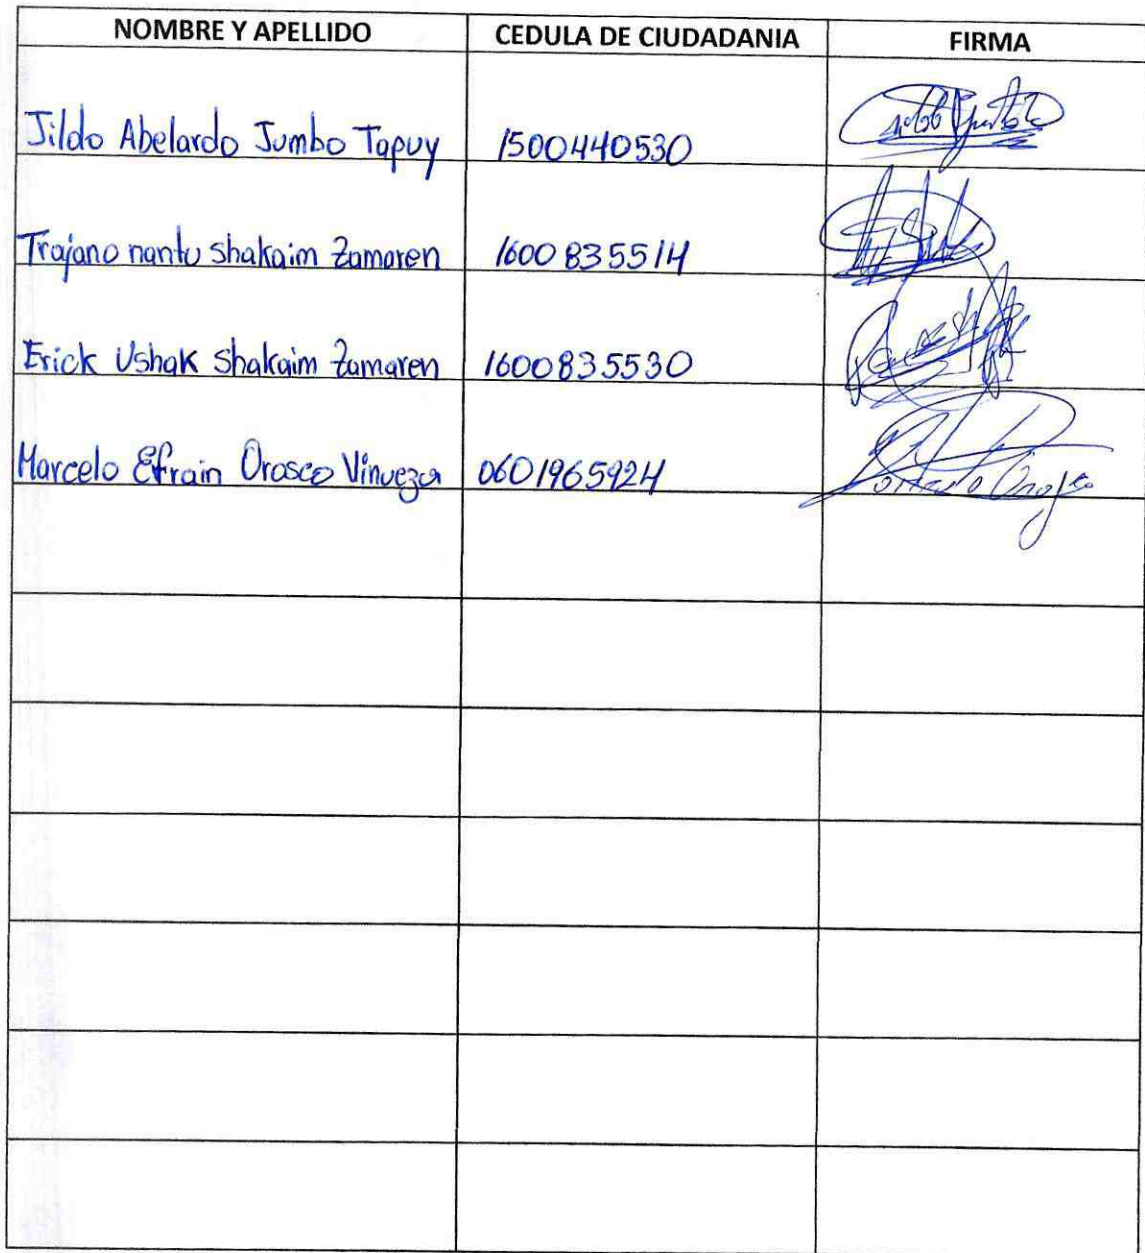 NOMBRE Y APELLIDO CEDULA DE CIUDADANIA FIRMA
Jildo Abelardo Jumbo Tapuy 1500440530
Trajano nantu shakaim Zamaren 1600835514
Erick Ushak shakaim Zamaren 1600835530
Marcelo Efrain Orosco Vinueza 0601965924